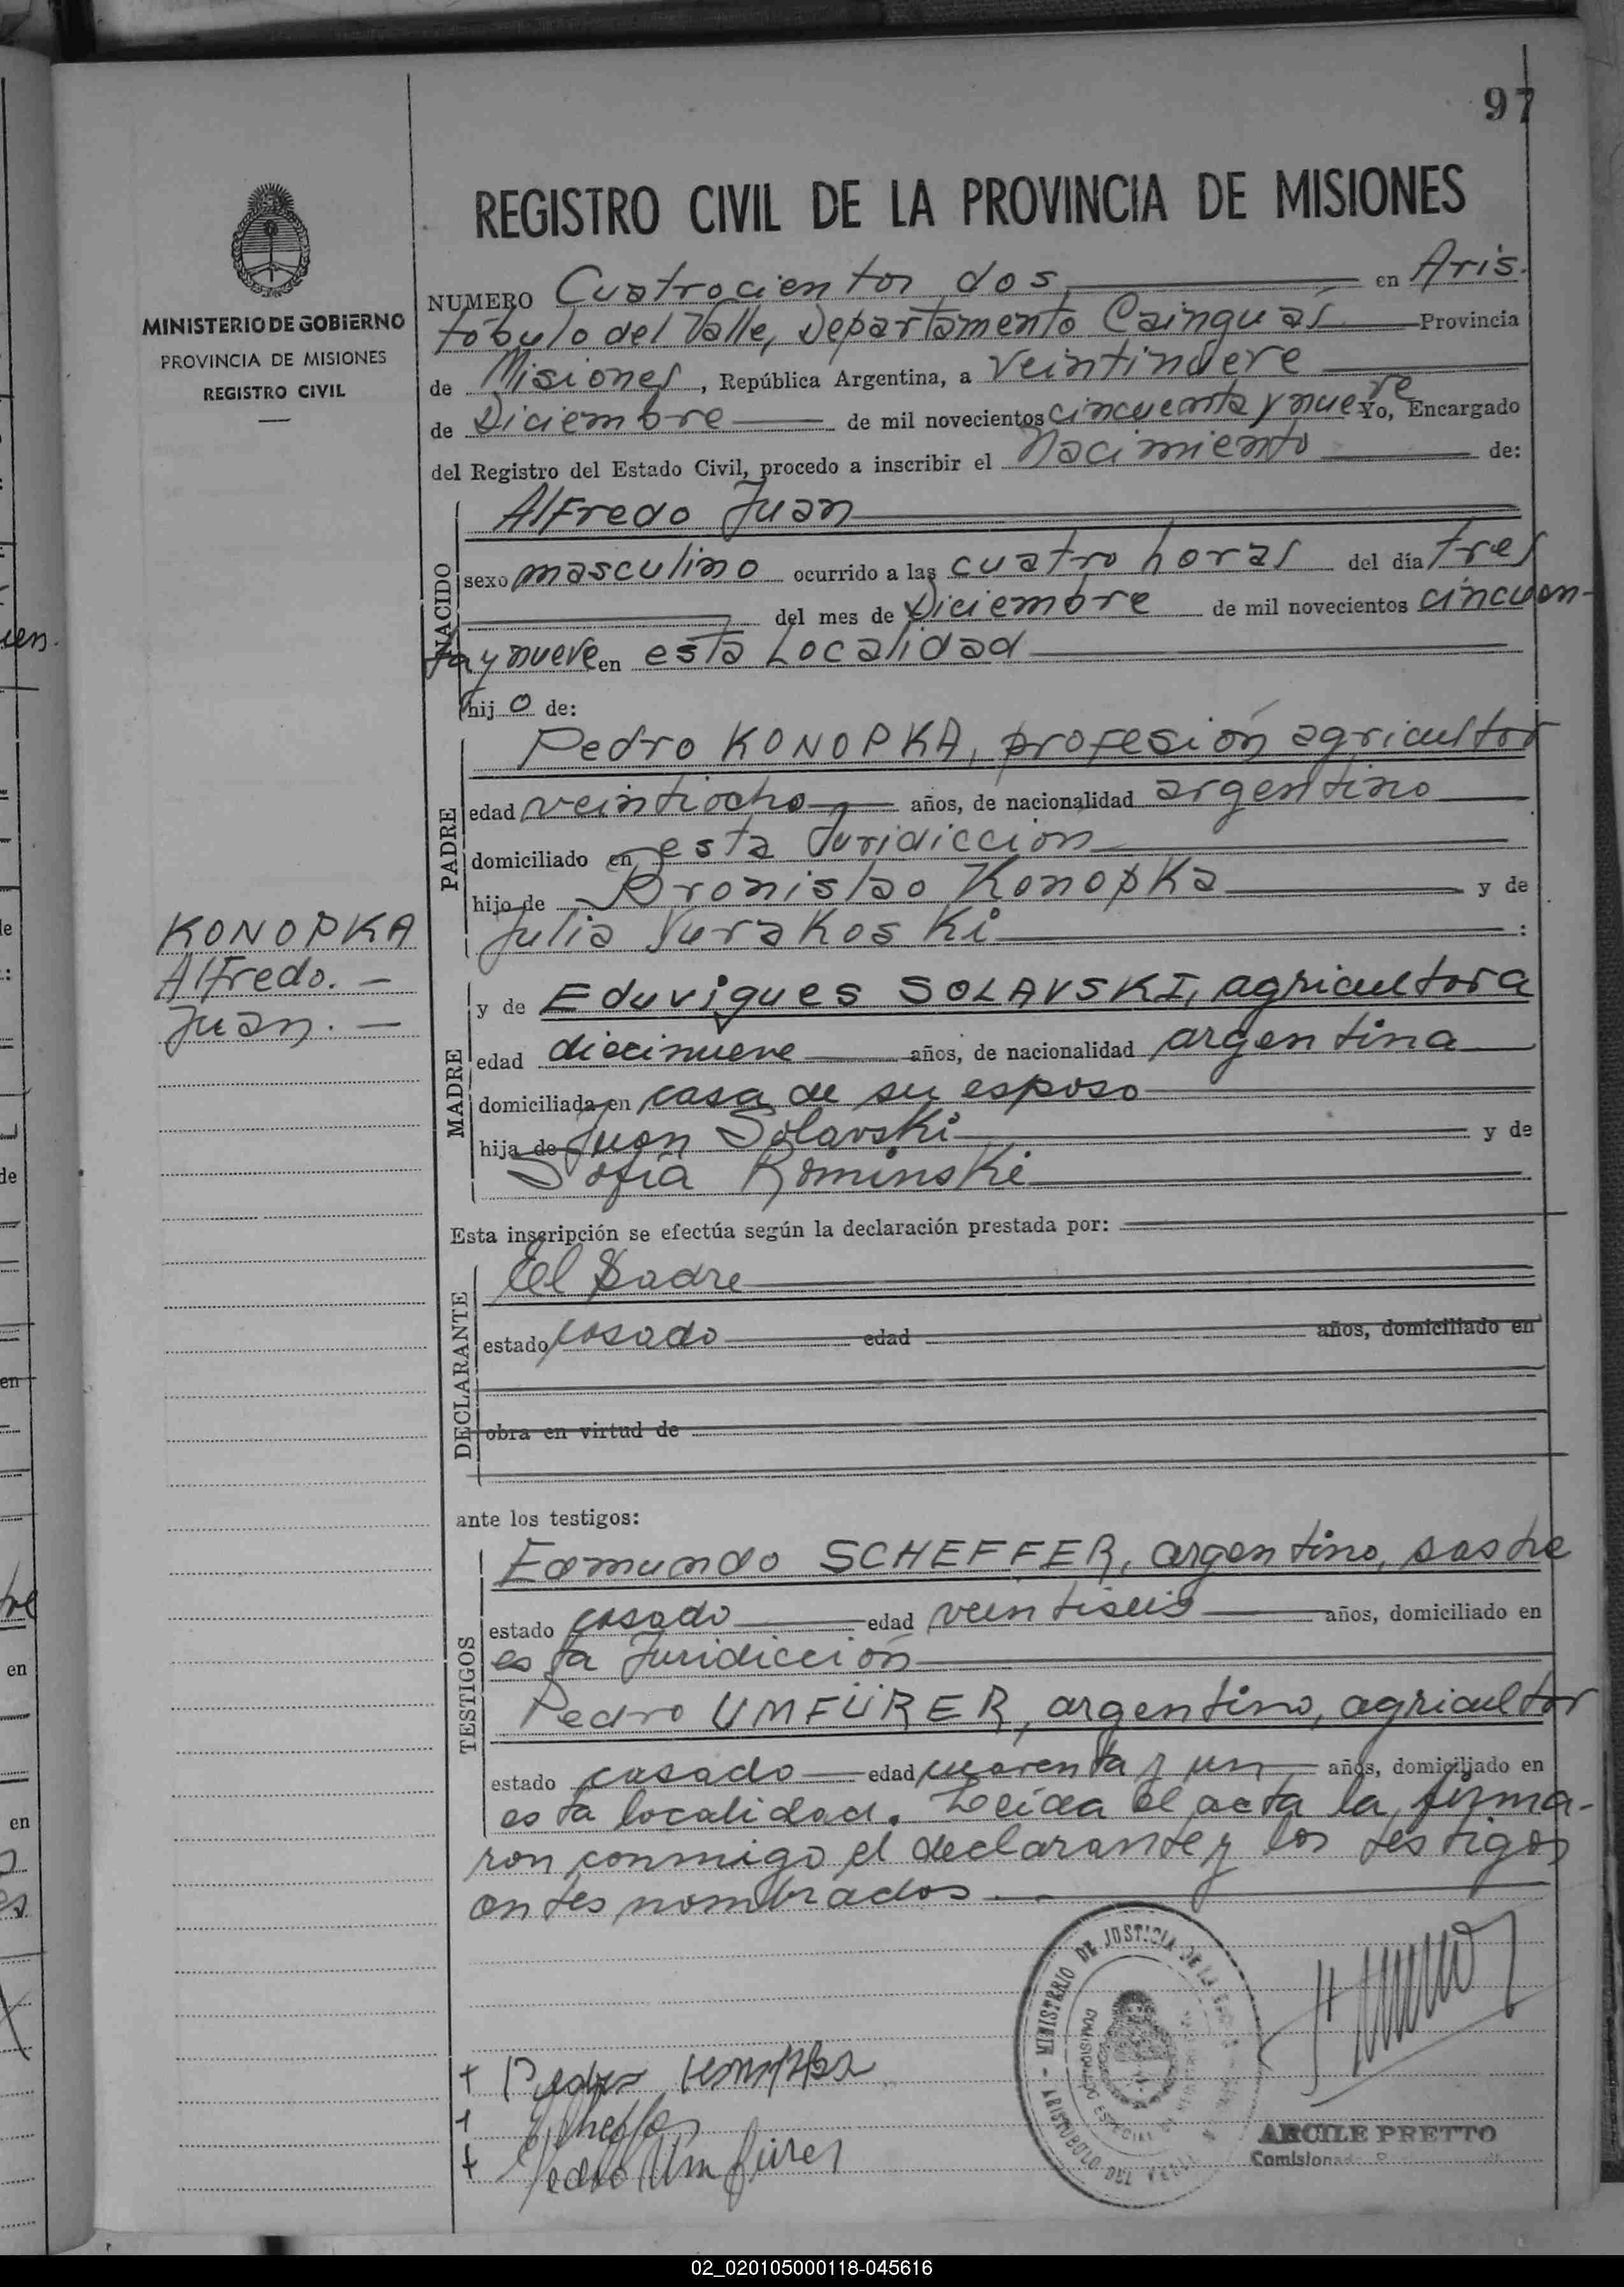 97
REGISTRO CIVIL DE LA PROVINCIA DE MISIONES
MINISTERIO DE GOBIERNO
PROVINCIA DE MISIONES
REGISTRO CIVIL
NUMERO Cuatrocientos dos en Aris-
tóbulo del Valle, Departamento Cainguás Provincia
de Misiones, República Argentina, a veintinueve
de Diciembre de mil novecientos cincuenta y nueve Yo, Encargado
del Registro del Estado Civil, procedo a inscribir el Nacimiento de:
NACIDO
Alfredo Juan
sexo masculino ocurrido a las cuatro horas del día tres
del mes de Diciembre de mil novecientos cincuen-
ta y nueve en esta Localidad
hijo de:
PADRE
Pedro KONOPKA, profesión agricultor
edad veintiocho años, de nacionalidad argentino
domiciliado en esta Juridiccion
hijo de Bronislao Konopka y de
Julia Yurakoski :
KONOPKA
Alfredo. -
Juan. -
MADRE
y de Eduvigues SOLAVSKI, agricultora
edad diecinueve años, de nacionalidad argentina
domiciliada en casa de su esposo
hija de Juan Solavski y de
Sofía Rominski
Esta inscripción se efectúa según la declaración prestada por:
DECLARANTE
El Padre
estado casado edad años, domiciliado en
obra en virtud de
ante los testigos:
TESTIGOS
Edmundo SCHEFFER, argentino, sastre
estado casado edad veintiseis años, domiciliado en
esta Juridicción
Pedro UMFÜRER, argentino, agricultor
estado casado edad cuarenta y un años, domiciliado en
esta localidad. Leída el acta la firma-
ron conmigo el declarante y los testigos
antes nombrados.
MINISTERIO DE JUSTICIA DE LA
ARISTOBULO DEL VALLE
+ Pedro Konopka
+ Scheffer
+ Pedro Umfürer
ARCILE PRETTO
02_020105000118-045616